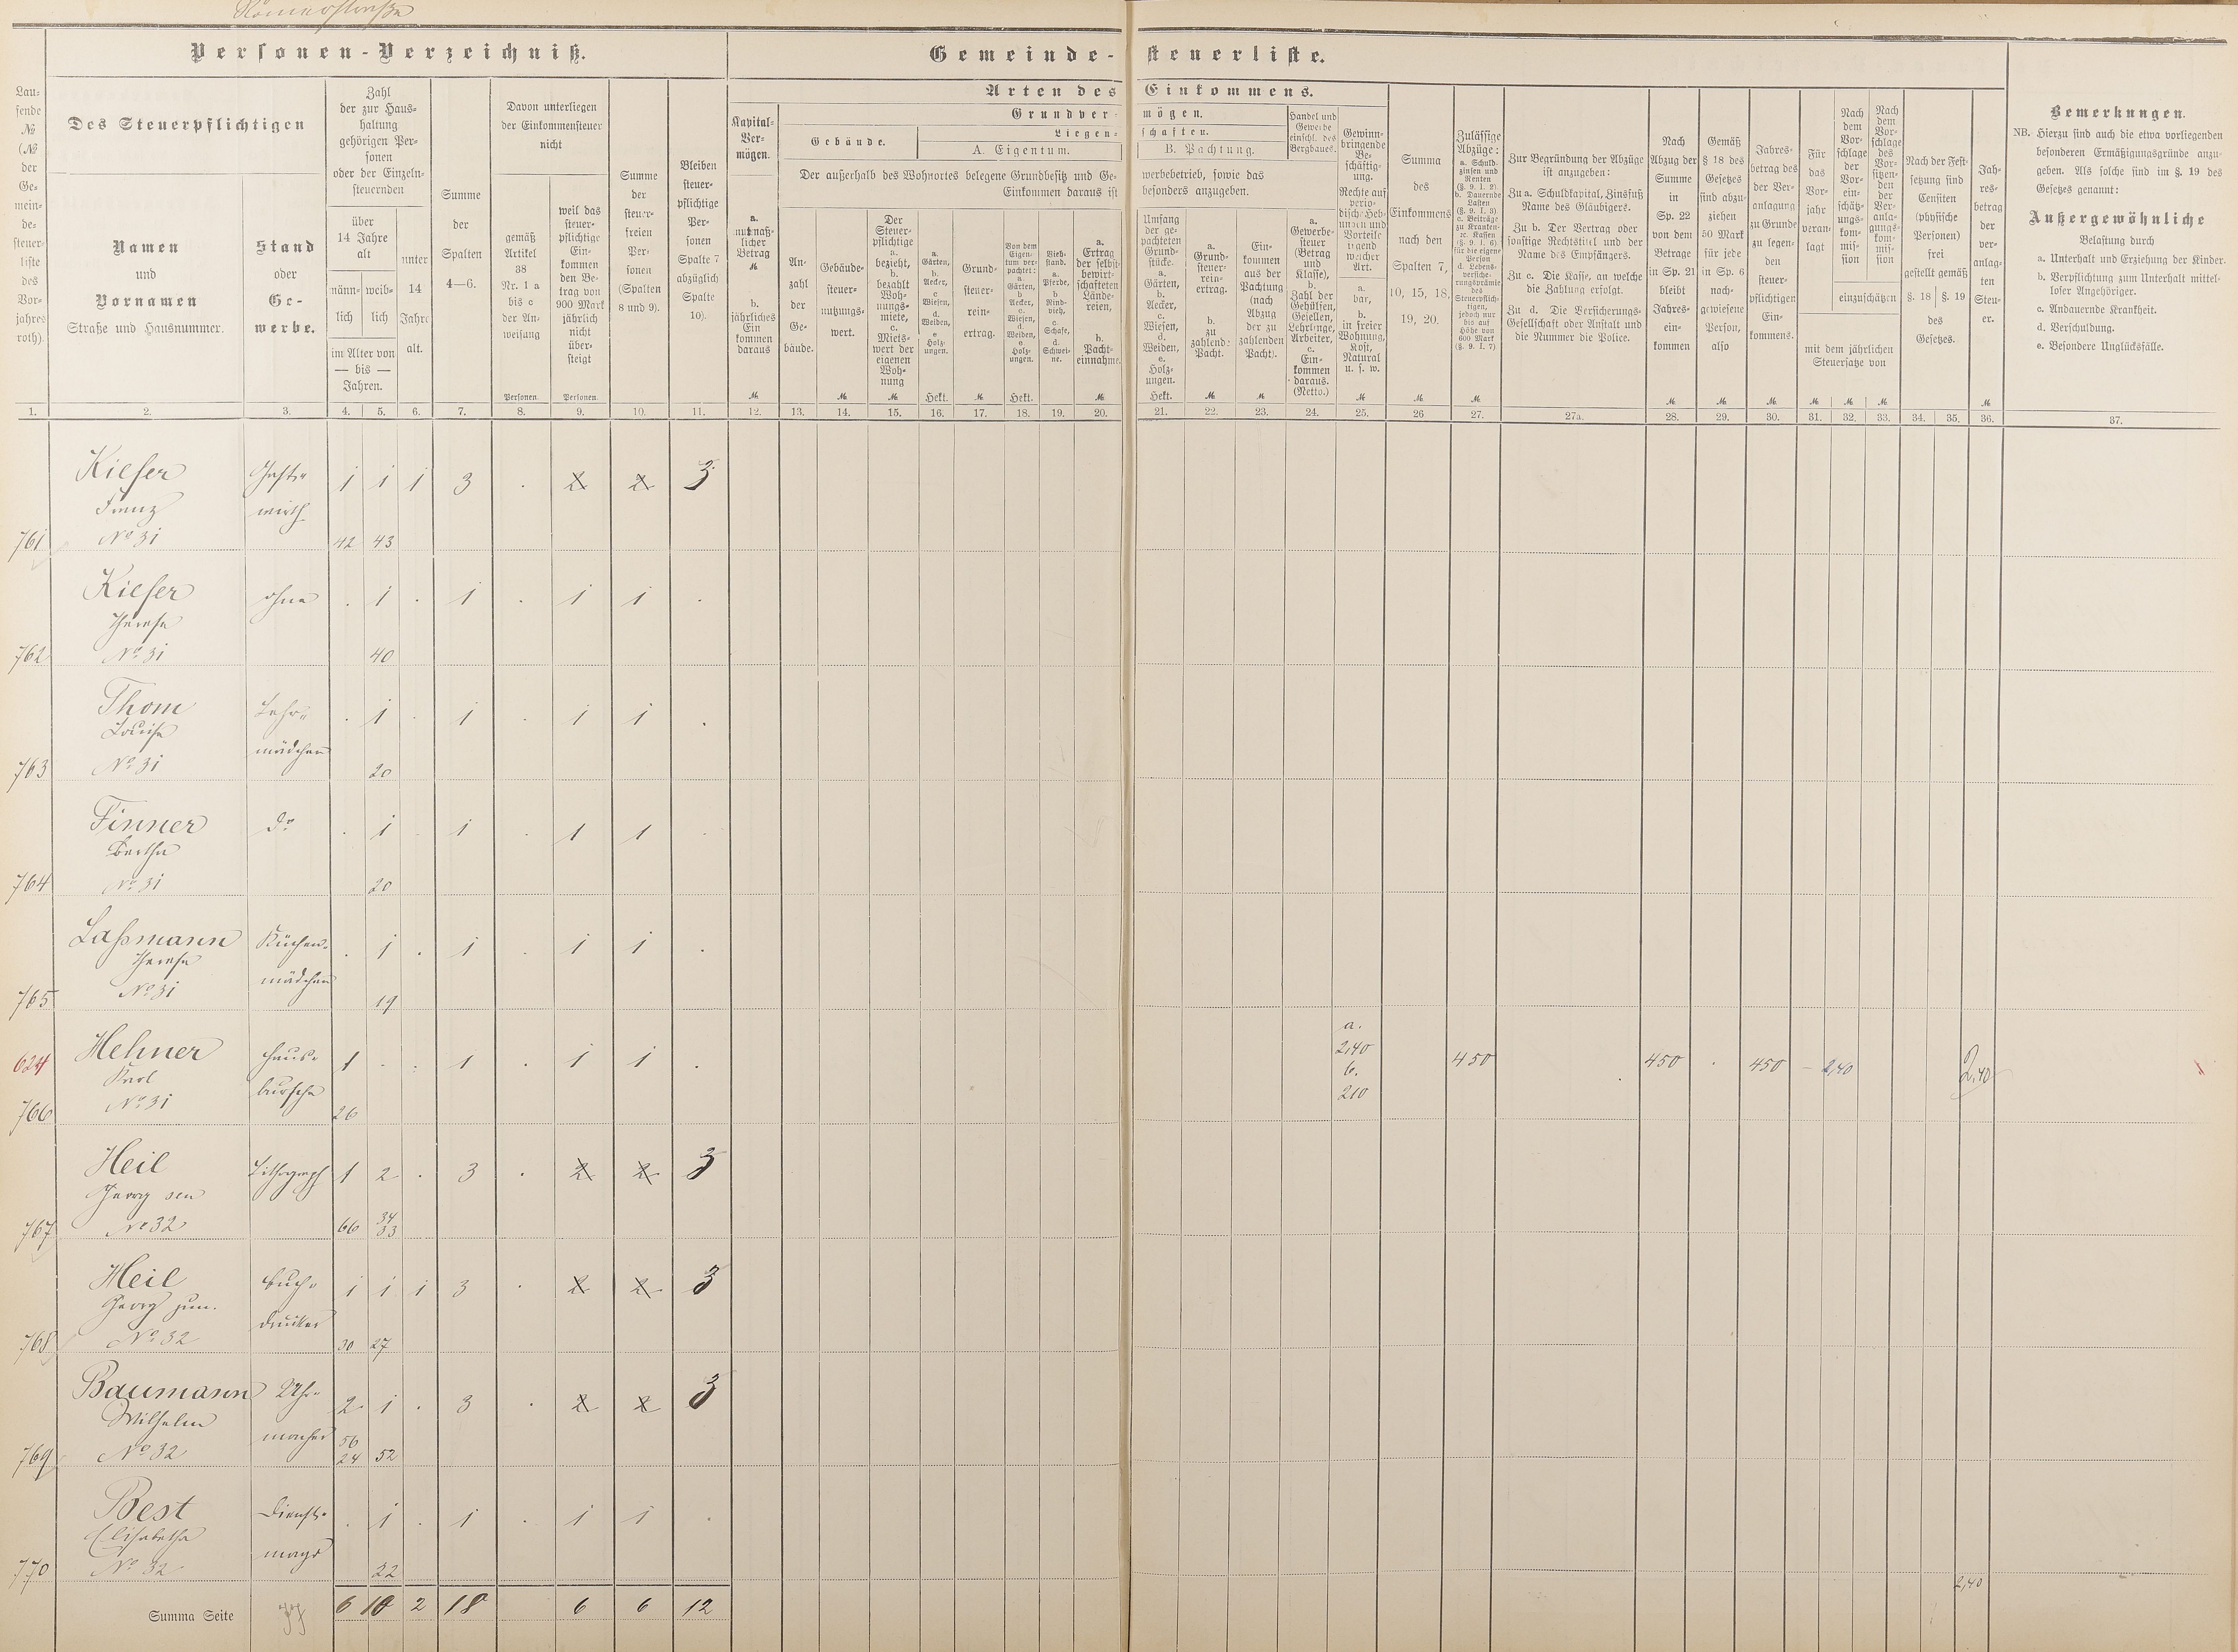 Römerstraße
Personen-Verzeichniß.
Gemeinde-steuerliste.
Laufende
№
(№
der
Gemeindesteuerliste
des
Vorjahres
roth).
Des Steuerpflichtigen
Namen
und
Vornamen
Straße und Hausnummer.
Stand
oder
Gewerbe.
Zahl
der zur Haushaltung
gehörigen Personen
oder der Einzelnsteuernden
über
14 Jahre
alt
männlich
weiblich
im Alter von
— bis —
Jahren.
unter
14
Jahre
alt.
Summe
der
Spalten
4—6.
Davon unterliegen
der Einkommensteuer
nicht
gemäß
Artikel
38
Nr. 1 a
bis c
der Anweisung
Personen.
weil das
steuerpflichtige
Einkommen
den Betrag von
900 Mark
jährlich
nicht
übersteigt
Personen.
Summe
der
steuerfreien
Personen
(Spalten
8 und 9).
Bleiben
steuerpflichtige
Personen
Spalte 7
abzüglich
Spalte
10).
Arten des Einkommens.
Kapital-Vermögen.
a.
muthmaßlicher
Betrag
M
b.
jährliches
Einkommen
daraus
M
Grundvermögen.
Gebäude.
Liegenschaften.
A. Eigentum.
B. Pachtung.
Der außerhalb des Wohnortes belegene Grundbesitz und Gewerbebetrieb, sowie das
Einkommen daraus ist besonders anzugeben.
Anzahl
der
Gebäude.
Gebäudesteuernutzungswert.
M
Der
Steuerpflichtige
a.
bezieht,
b.
bezahlt
Wohnungsmiete,
c.
Mietswert der
eigenen
Wohnung
M
a.
Gärten,
b.
Aecker,
c.
Wiesen,
d.
Weiden,
e.
Holzungen.
Hekt.
Grundsteuerreinertrag.
M
Von dem
Eigentum verpachtet:
a.
Gärten,
b.
Aecker,
c.
Wiesen,
d.
Weiden,
e.
Holzungen.
Hekt.
Viehstand.
a.
Pferde,
b.
Rindvieh,
c.
Schafe,
d.
Schweine.
a.
Ertrag
der selbstbewirtschafteten
Ländereien,
b.
Pachteinnahme.
M
Umfang
der gepachteten
Grundstücke.
a.
Gärten,
b.
Aecker,
c.
Wiesen,
d.
Weiden,
e.
Holzungen.
Hekt.
a.
Grundsteuerreinertrag.
b.
zu
zahlende
Pacht.
M
Einkommen
aus der
Pachtung
(nach
Abzug
der zu
zahlenden
Pacht).
M
Handel und
Gewerbe
einschl. des
Bergbaues.
a.
Gewerbesteuer
(Betrag
und
Klasse),
b.
Zahl der
Gehülfen,
Gesellen,
Lehrlinge,
Arbeiter,
c.
Einkommen
daraus.
(Netto.)
Gewinnbringende
Beschäftigung.
Rechte auf
periodische Hebungen und
Vorteile
irgend
welcher
Art.
a.
bar,
b.
in freier
Wohnung,
Kost,
Natural
u. s. w.
M
Summa
des
Einkommens
nach den
Spalten 7,
10, 15, 18,
19, 20.
M
Zulässige
Abzüge:
a. Schuldzinsen und
Renten
(§. 9. I. 2).
b. Dauernde
Lasten
(§. 9. I. 3).
c. Beiträge
zu Kranken- 2c. Kassen
(§. 9. I. 6)
für die eigene
Person
d. Lebensversicherungsprämie
des
Steuerpflichtigen,
jedoch nur
bis auf
Höhe von
600 Mark
(§. 9. I. 7).
M
Zur Begründung der Abzüge
ist anzugeben:
Zu a. Schuldkapital, Zinsfuß
Name des Gläubigers.
Zu b. Der Vertrag oder
sonstige Rechtstitel und der
Name des Empfängers.
Zu c. Die Kasse, an welche
die Zahlung erfolgt.
Zu d. Die Versicherungs-Gesellschaft oder Anstalt und
die Nummer der Police.
Nach
Abzug der
Summe
in
Sp. 22
von dem
Betrage
in Sp. 21
bleibt
Jahreseinkommen
M
Gemäß
§ 18 des
Gesetzes
sind abzuziehen
50 Mark
für jede
in Sp. 6
nachgewiesene
Person,
also
M
Jahresbetrag des
der Veranlagung
zu Grunde
zu legenden
steuerpflichtigen
Einkommens.
M
Für
das
Vorjahr
veranlagt
M
Nach
dem
Vorschlage
der
Voreinschätzungskommission
M
Nach
dem
Vorschlage
des
Vorsitzenden
der
Veranlagungskommission
M
einzuschätzen
mit dem jährlichen
Steuersatze von
Nach der Festsetzung sind
Censiten
(physische
Personen)
frei
gestellt gemäß
§. 18
§. 19
des
Gesetzes.
Jahresbetrag
der
veranlagten
Steuer.
M
Bemerkungen.
NB. Hierzu sind auch die etwa vorliegenden
besonderen Ermäßigungsgründe anzugeben. Als solche sind im §. 19 des
Gesetzes genannt:
Außergewöhnliche
Belastung durch
a. Unterhalt und Erziehung der Kinder.
b. Verpflichtung zum Unterhalt mittelloser Angehöriger.
c. Andauernde Krankheit.
d. Verschuldung.
e. Besondere Unglücksfälle.
1. 2. 3. 4. 5. 6. 7. 8. 9. 10. 11. 12. 13. 14. 15. 16. 17. 18. 19. 20. 21. 22. 23. 24. 25. 26 27. 27a. 28. 29. 30. 31. 32. 33. 34. 35. 36. 37.
Kiefer Gast- 1 1 1 3 . 2 2 3
Franz wirth
761 No 31 42 43
Kiefer ohne . 1 . 1 . 1 1 .
Therese
762 No 31 40
Thom Lehr- . 1 . 1 . 1 1 .
Louise mädchen
763 No 31 20
Finner do . 1 . 1 . 1 1 .
Bertha
764 No 31 20
Lassmann Küchen- . 1 . 1 . 1 1 .
Therese mädchen
765 No 31 19
624 Hehner Haus- 1 . . 1 . 1 1 . a. 240 b. 210 450 450 . 450 - 2,40 2,40
Karl bursche
766 No 31 26
Heil Lithograph 1 2 . 3 . 2 2 3
Georg sen
767 No 32 66 34 33
Heil Buch- 1 1 1 3 . 2 2 3
Georg jun. drucker
768 No 32 30 27
Baumann Uhr- 2 1 . 3 . 2 2 3
Wilhelm macher
769 No 32 56 24 52
Best Dienst- . 1 . 1 . 1 1 .
Elisabetha magd
770 No 32 22
2,40
Summa Seite 77 6 10 2 18 6 6 12